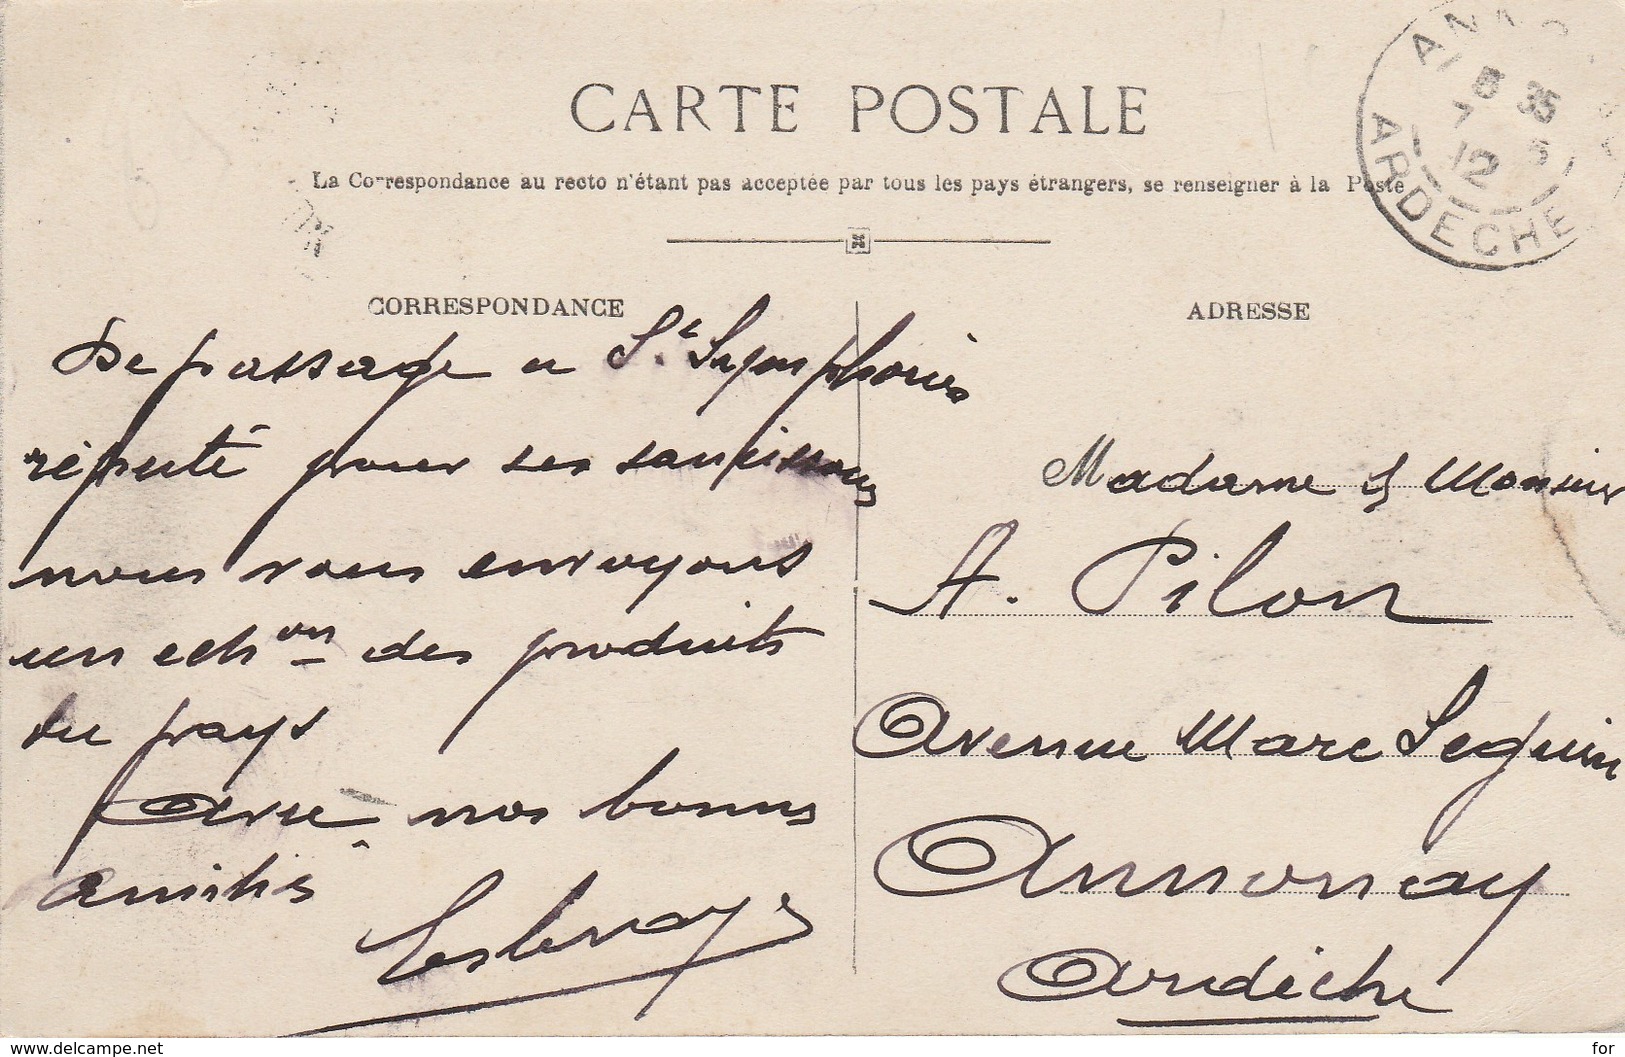 CARTE POSTALE
La Correspondance au recto n'étant pas acceptée par tous les pays étrangers, se renseigner à la Poste
CORRESPONDANCE
De passage a St Symphorien
réputé pour ses saucissons
nous vous envoyons
un echon des produits
du pays
Avec nos bonnes
amitiés
ADRESSE
Madame & Monsieur
A. Pilon
Avenue Marc Seguin
Annonay
Ardèche
8 35
7 5
12
ARDECHE
www.delcampe.net
for